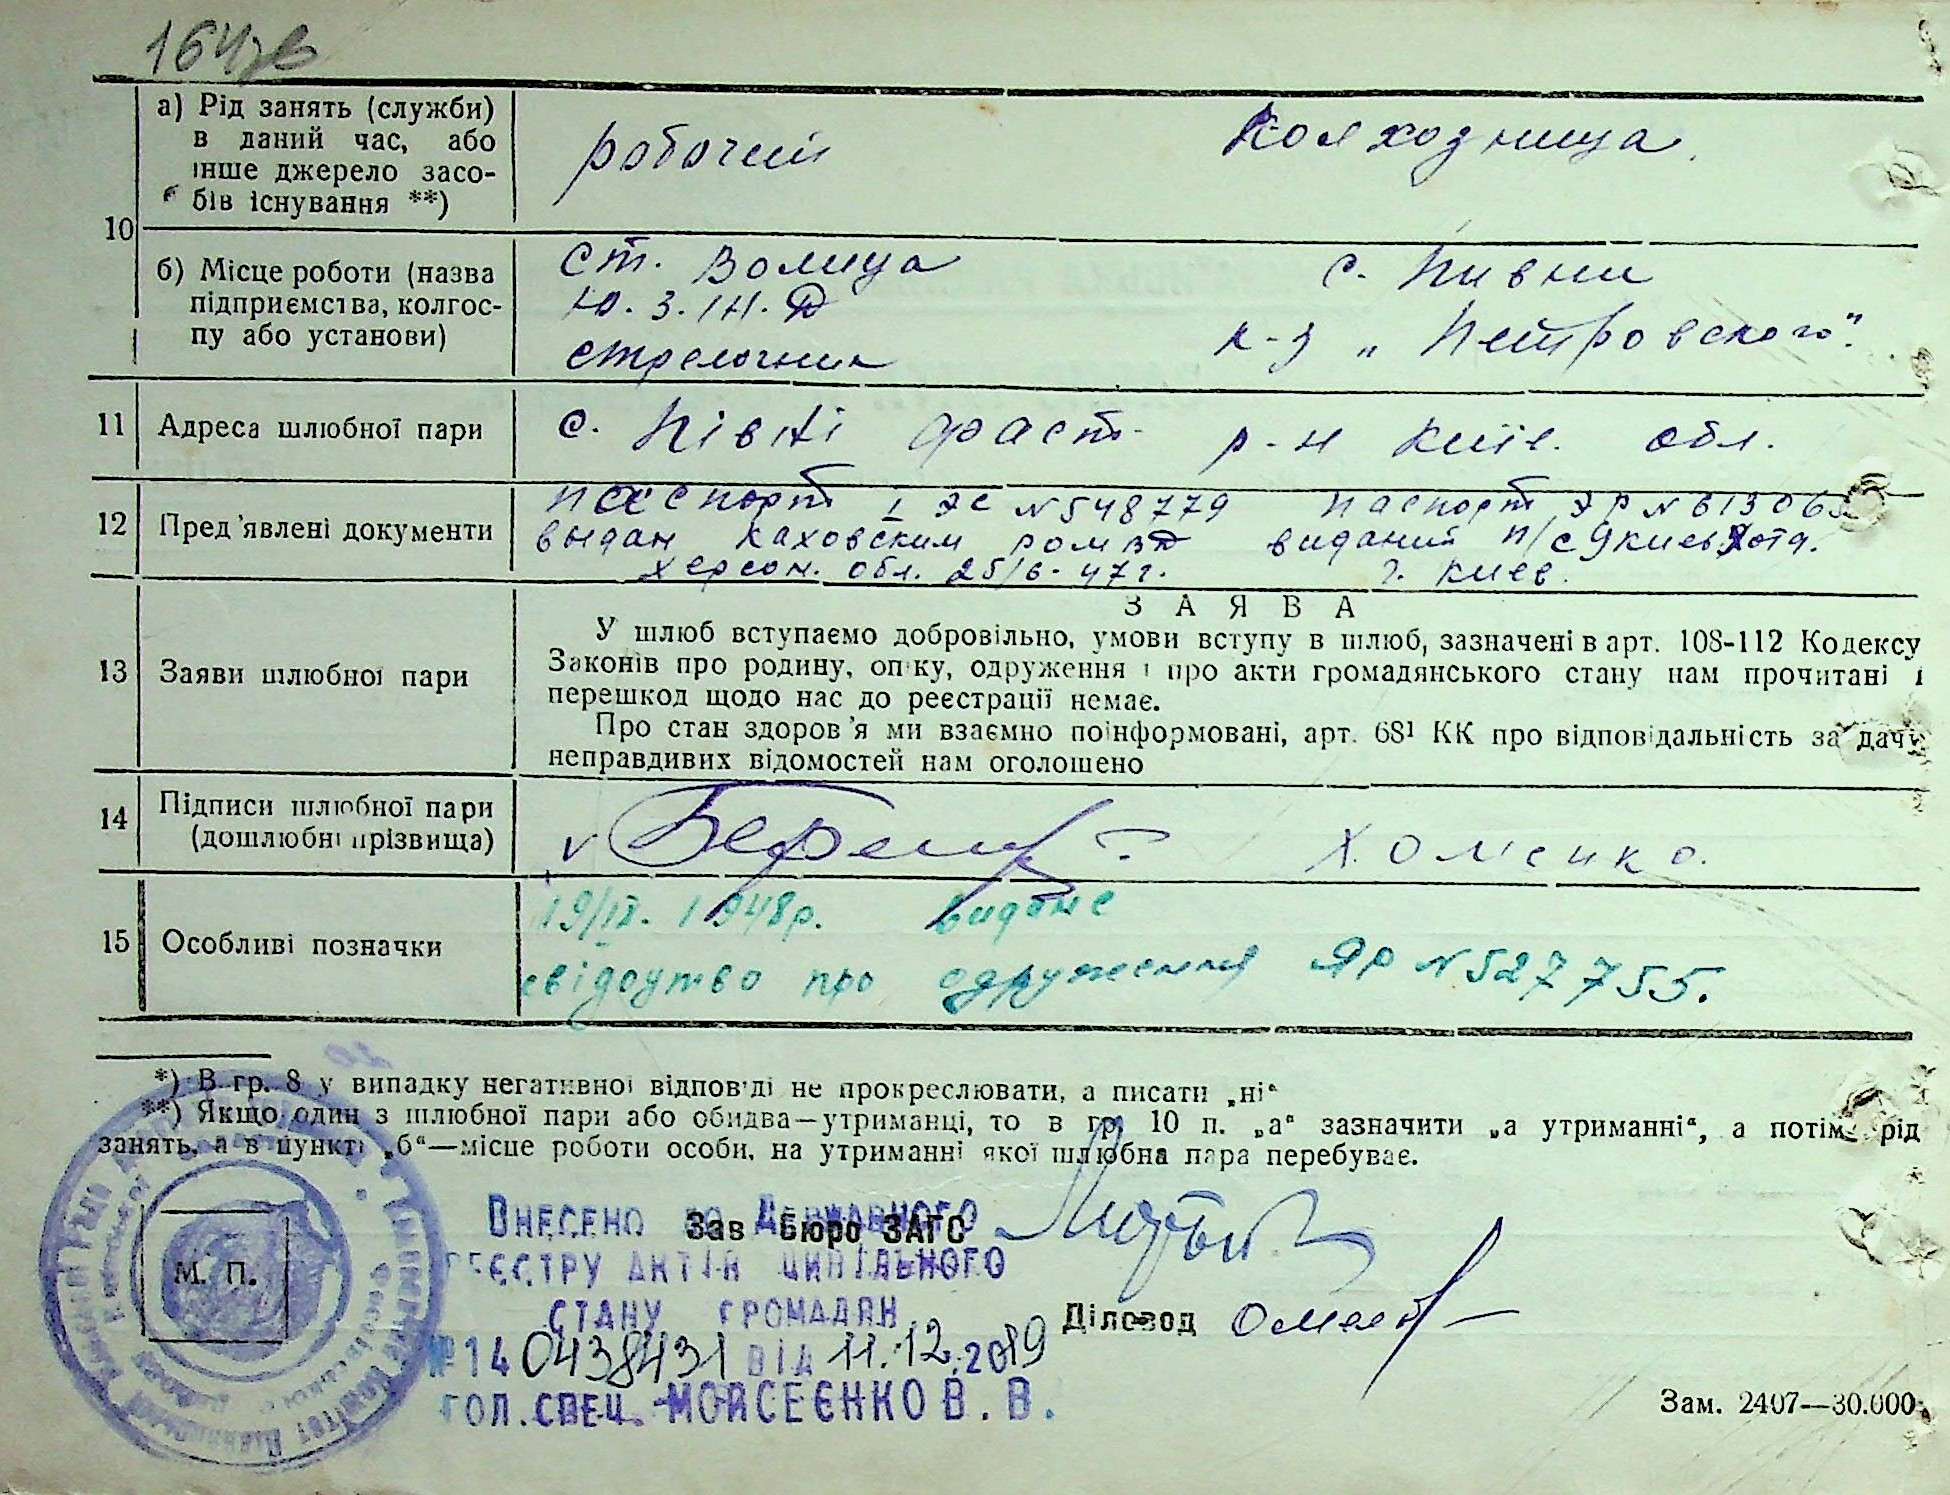 164зв
а) Рід занять (служби) в даний час, або інше джерело засобів існування **)
рабочий
Колхозница
10
б) Місце роботи (назва підприємства, колгоспу або установи)
ст. Волица
с. Пивни
Ю. З. Ж. Д
стрелочник
к-з „Петровского"
11 Адреса шлюбної пари
с. Півні Фаст. р-н Київ. обл.
12 Пред'явлені документи
паспорт I ЭС №548779
выдан Каховским РОМВД
Херсон. обл. 25/6-47г.
паспорт ЭР №
виданий п/с 9 Киев
г. Киев.
13 Заяви шлюбної пари
ЗАЯВА
У шлюб вступаємо добровільно, умови вступу в шлюб, зазначені в арт. 108-112 Кодексу
Законів про родину, опіку, одруження і про акти громадянського стану нам прочитані і
перешкод щодо нас до реєстрації немає.
Про стан здоров'я ми взаємно поінформовані, арт. 68¹ КК про відповідальність за дачу
неправдивих відомостей нам оголошено
14 Підписи шлюбної пари (дошлюбні прізвища)
Хоменко.
15 Особливі позначки
19/ІХ. 1948р. видане
свідоцтво про одруження ЯР №527755.
*) В гр. 8 у випадку негативної відповіді не прокреслювати, а писати „ні“
**) Якщо один з шлюбної пари або обидва—утриманці, то в гр. 10 п. „а“ зазначити „а утриманні“, а потім рід
занять, а в пункті „б“—місце роботи особи, на утриманні якої шлюбна пара перебуває.
М. П.
Зав Бюро ЗАГС
Діловод
Внесено до Державного
реєстру актів цивільного
стану громадян
№ 140438431 від 11.12.2019
гол. спец. Мойсеєнко В. В.
Зам. 2407—30.000